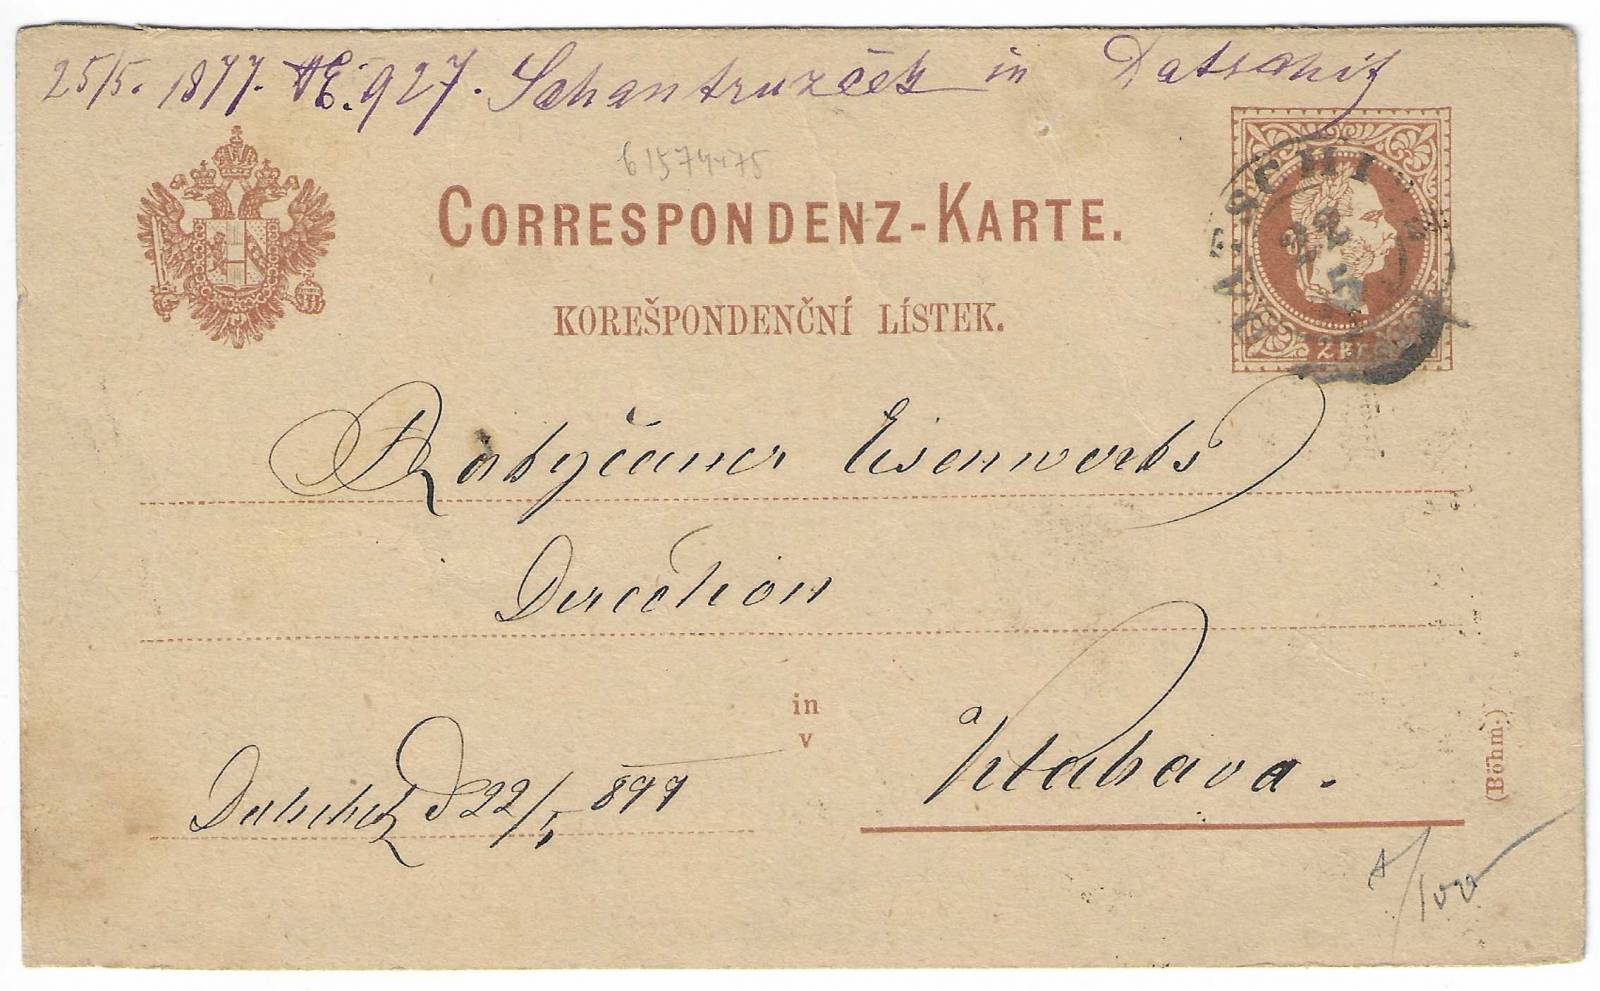 25/5. 1877. NE. 927. Schantruzček in Datschitz
61574475
CORRESPONDENZ-KARTE.
KOREŠPONDENČNÍ LÍSTEK.
DATSCHITZ
22
5
2 Kr.
Rokyčaner Eisenwerks
Direction
in
v
Datschitz d 22/5 877
Klabava.
(Böhm.)
/100